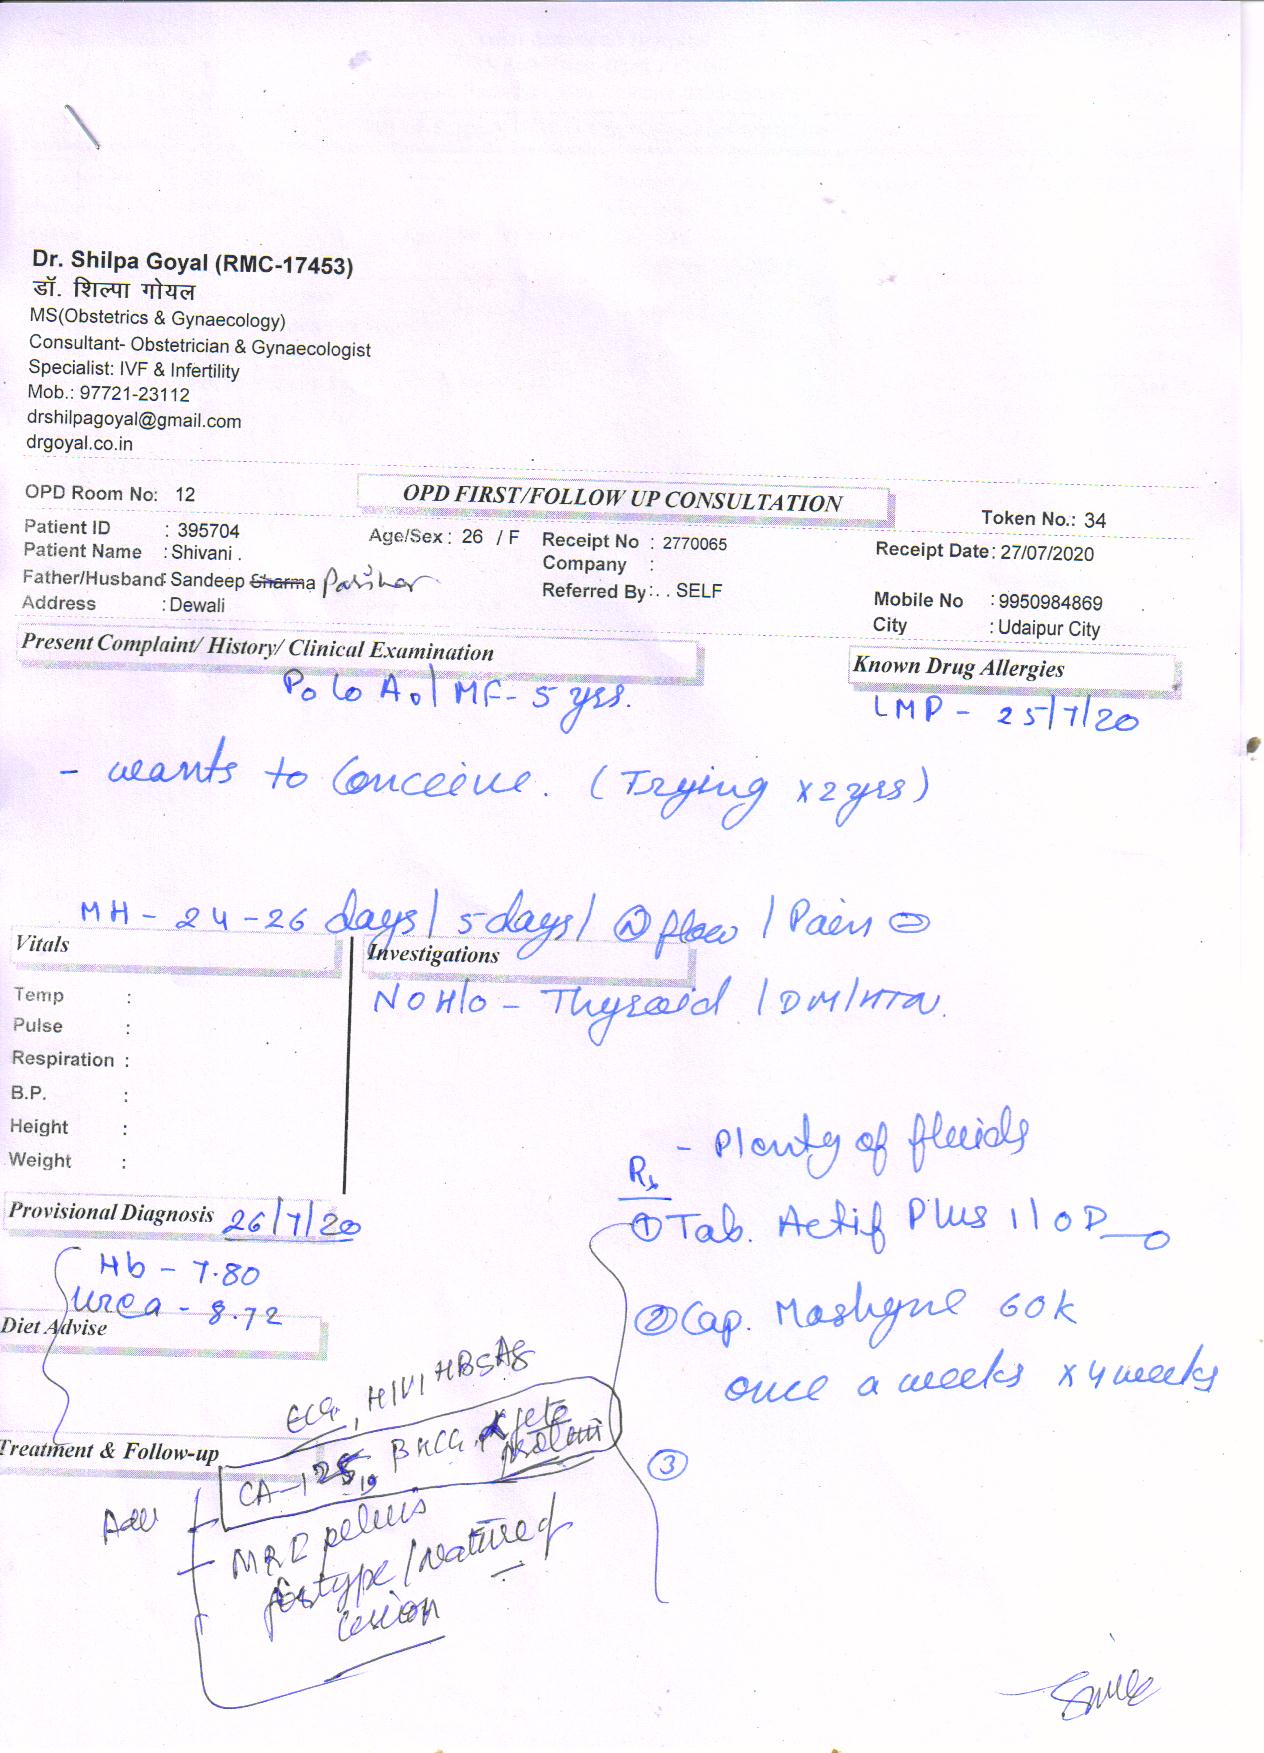 Dr. Shilpa Goyal (RMC-17453)
डॉ. शिल्पा गोयल
MS(Obstetrics & Gynaecology)
Consultant- Obstetrician & Gynaecologist
Specialist: IVF & Infertility
Mob.: 97721-23112
drshilpagoyal@gmail.com
drgoyal.co.in
OPD Room No: 12
OPD FIRST/FOLLOW UP CONSULTATION
Token No.: 34
Patient ID : 395704
Age/Sex : 26 / F
Receipt No : 2770065
Receipt Date: 27/07/2020
Patient Name : Shivani .
Company :
Father/Husband: Sandeep Sharma Parihar
Referred By: . . SELF
Mobile No : 9950984869
Address : Dewali
City : Udaipur City
Present Complaint/ History/ Clinical Examination
Known Drug Allergies
P0 L0 A0 / MF- 5 yrs.
LMP - 25/7/20
- wants to Conceive. (Trying x 2 yrs)
MH - 24-26 days / 5 days / N flow / Pain
Vitals
Investigations
NO H/O - Thyroid / DM / HTN.
Temp :
Pulse :
Respiration :
B.P. :
Height :
Weight :
- Plenty of fluids
Rx
Provisional Diagnosis 26/7/20
① Tab. Actif Plus 1 OD
Hb - 7.80
Urea - 8.72
Diet Advise
② Cap. 60K
once a weeks x 4 weeks
ECG, HIV / HBSAg
Treatment & Follow-up
CA-125, 19 BHCG, feto protein
③
Adv
MRI pelvis
for type / Nature of
lesion